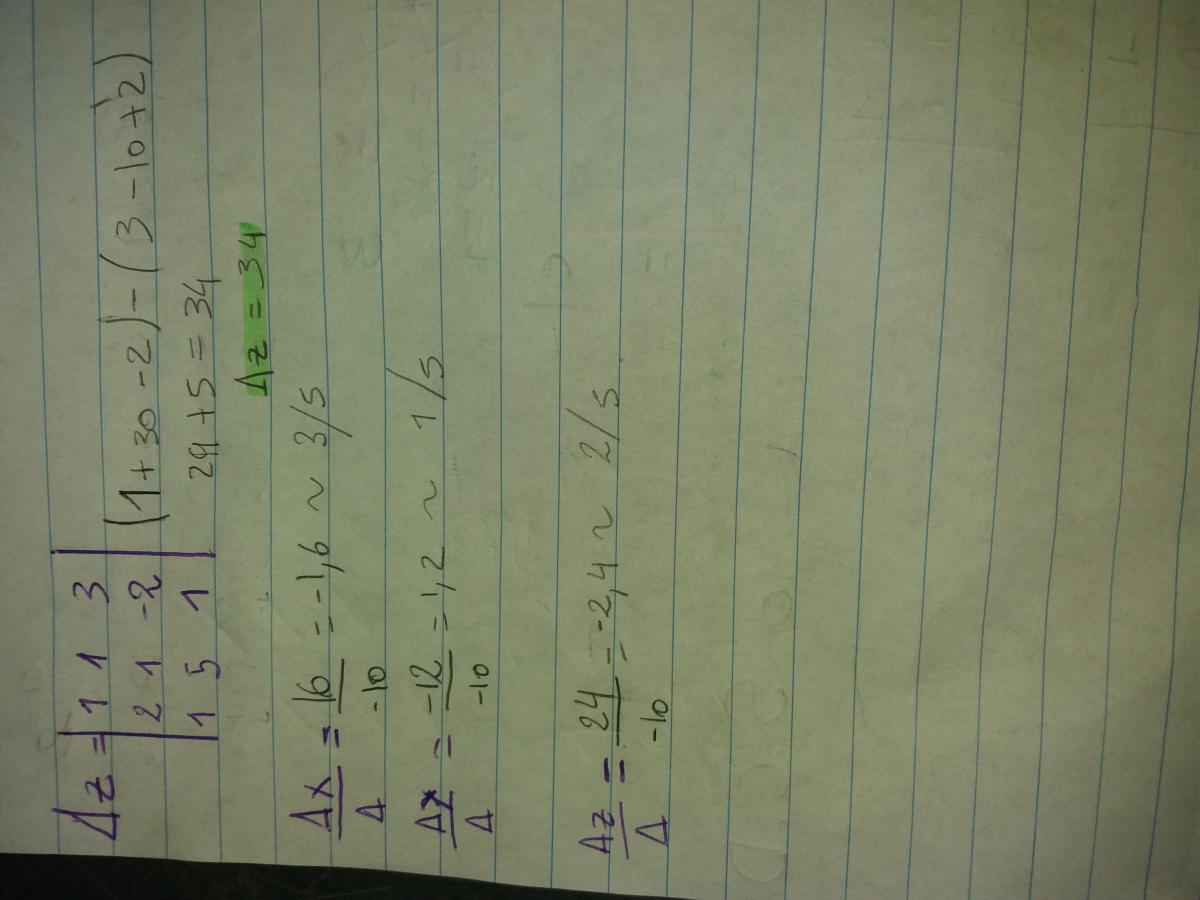 Δz = | 1 1 3 |
| 2 1 -2 | (1+30-2)-(3-10+2)
| 1 5 1 | 29+5=34
Δz = 34
Δx/Δ = 16/-10 = -1,6 ~ 3/5
Δy/Δ = -12/-10 = 1,2 ~ 1/5
Δz/Δ = 24/-10 = -2,4 ~ 2/5